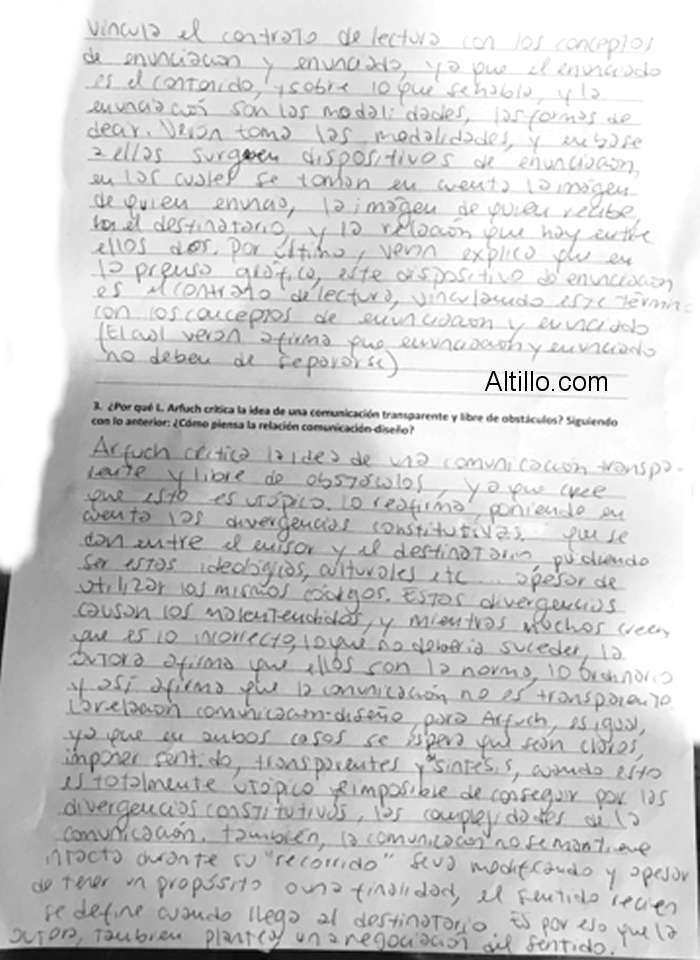 vincula el contrato de lectura con los conceptos
de enunciacion y enunciado, ya que el enunciado
es el contenido, y sobre lo que se habla, y la
enunciación son las modalidades, las formas de
decir. Verón toma las modalidades, y en base
a ellas surgen dispositivos de enunciacion,
en los cuales se toman en cuenta la imágen
de quien enuncia, la imágen de quien recibe,
el destinatario, y la relación que hay entre
ellos dos. Por último, verón explica que en
la prensa gráfica, este dispositivo de enunciacion
es el contrato de lectura, vinculando este térmi-
con los conceptos de enunciacion y enunciado
(El cual veron afirma que enunciacion y enunciado
no deben de separarse)
Altillo.com
3. ¿Por qué L. Arfuch critica la idea de una comunicación transparente y libre de obstáculos? Siguiendo
con lo anterior: ¿Cómo piensa la relación comunicación-diseño?
Arfuch critica la idea de una comunicación transpa-
rente y libre de obstáculos, ya que cree
que esto es utópico. Lo reafirma, poniendo en
cuenta las divergencias constitutivas, que se
dan entre el emisor y el destinatario, pudiendo
ser estas ideologias, culturales etc... apesar de
utilizar los mismos códigos. Estas divergencias
causan los malentendidos, y mientras muchos creen
que es lo incorrecto, lo que no deberia suceder, la
autora afirma que ellos son la norma, lo ordinario
y así afirma que la comunicación no es transparente.
La relación comunicacion-diseño, para Arfuch, es igual,
ya que en ambos casos se espera que sean claros,
imponer sentido, transparentes y síntesis, cuando esto
es totalmente utópico e imposible de conseguir por las
divergencias constitutivas, las complejidades de la
comunicación. también, la comunicacion no se mantiene
intacta durante su "recorrido" se va modificando y apesar
de tener un propósito o una finalidad, el sentido recien
se define cuando llega al destinatario. Es por eso que la
autora, tambien plantea una negociación del sentido.